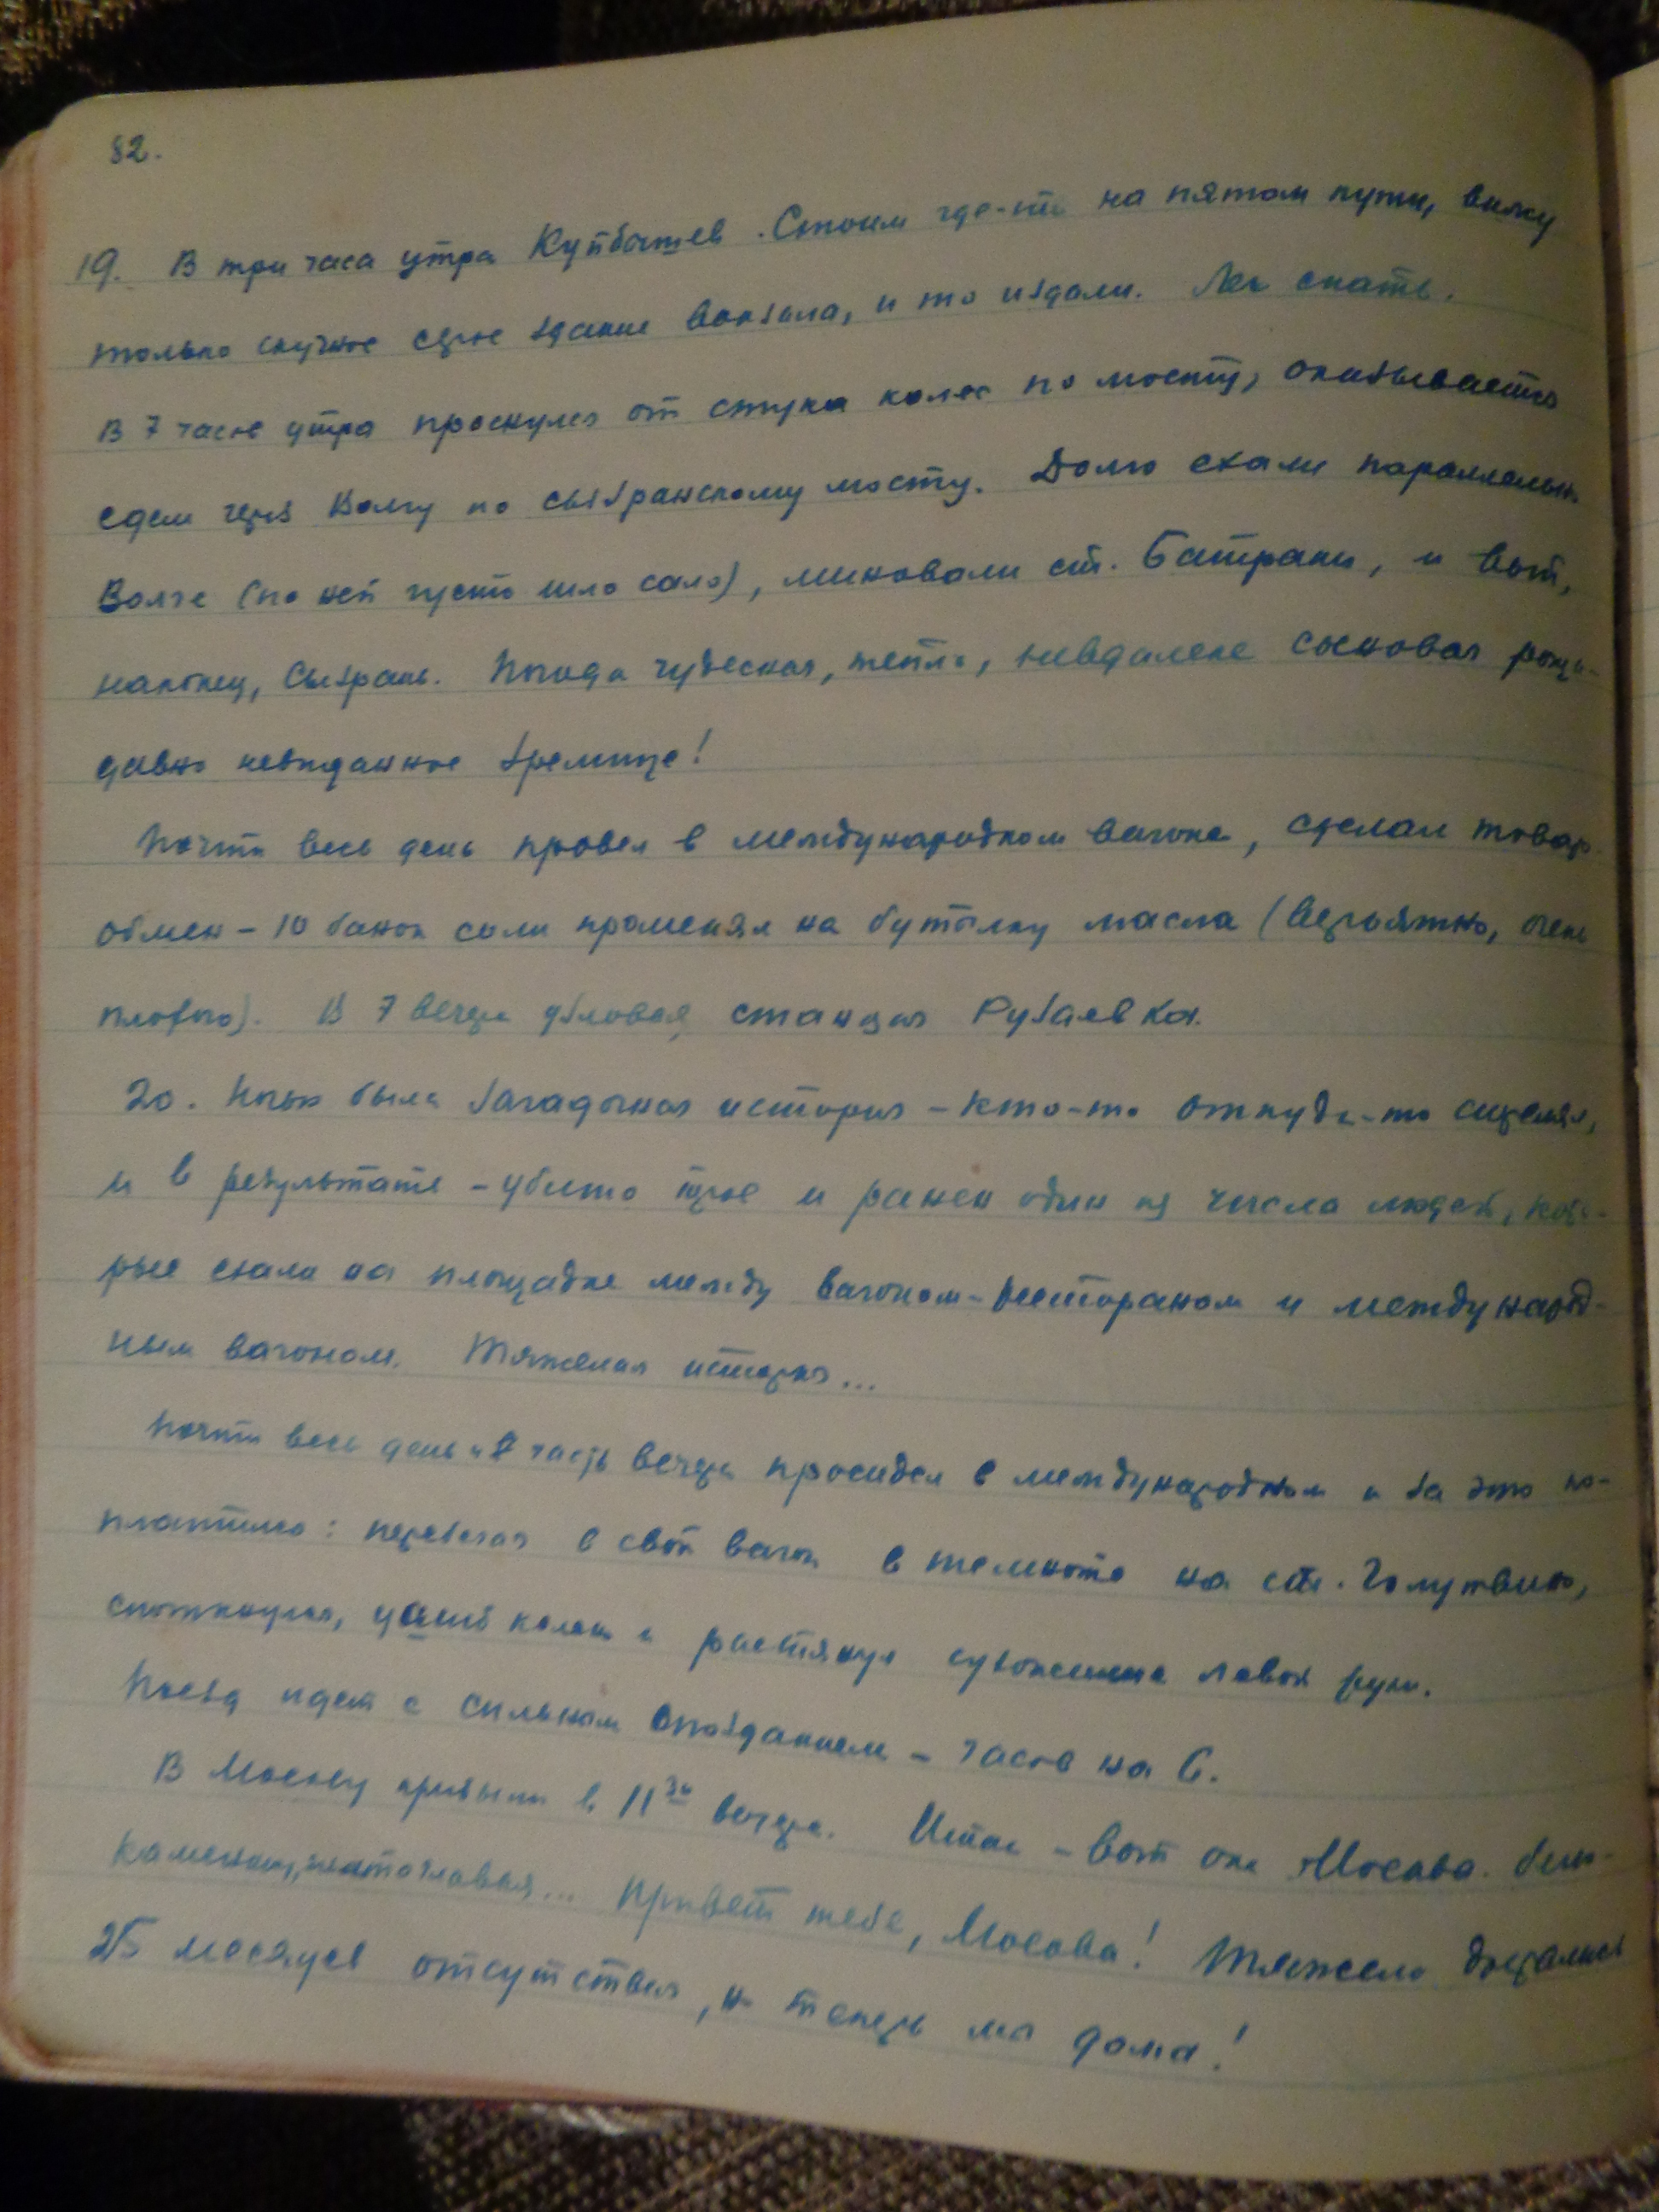 82.
19. В три часа утра Куйбышев. Стоим где-то на пятом пути, вижу
только скучное серое здание вокзала, и то издали. Лег спать.
В 7 часов утра проснулся от стука колес по мосту, оказывается
едем через Волгу по сызранскому мосту. Долго ехали параллельно
Волге (по ней густо шло сало), миновали ст. Батраки, и вот,
наконец, Сызрань. Погода чудесная, тепло, невдалеке сосновая роща-
давно невиданное зрелище!
Почти весь день провел в международном вагоне, сделал товар-
обмен - 10 банок соли променял на бутылку масла (вероятно, очень
плохого). В 7 вечера узловая станция Рузаевка.
20. Ночью была загадочная история - кто-то откуда-то стрелял,
и в результате - убито трое и ранен один из числа людей, кото-
рые ехали на площадке между вагоном-рестораном и международ-
ным вагоном. Тяжелая история...
Почти весь день и часть вечера просидел в международном и за это по-
платился: перебегая в свой вагон в темноте на ст. Голутвино,
споткнулся, ушиб колено и растянул сухожилие левой руки.
Поезд идет с сильным опозданием - часов на 6.
В Москву прибыли в 11³⁰ вечера. Итак - вот она Москва бело-
каменная, златоглавая... Привет тебе, Москва! Тяжело достались
25 месяцев отсутствия, но теперь мы дома!